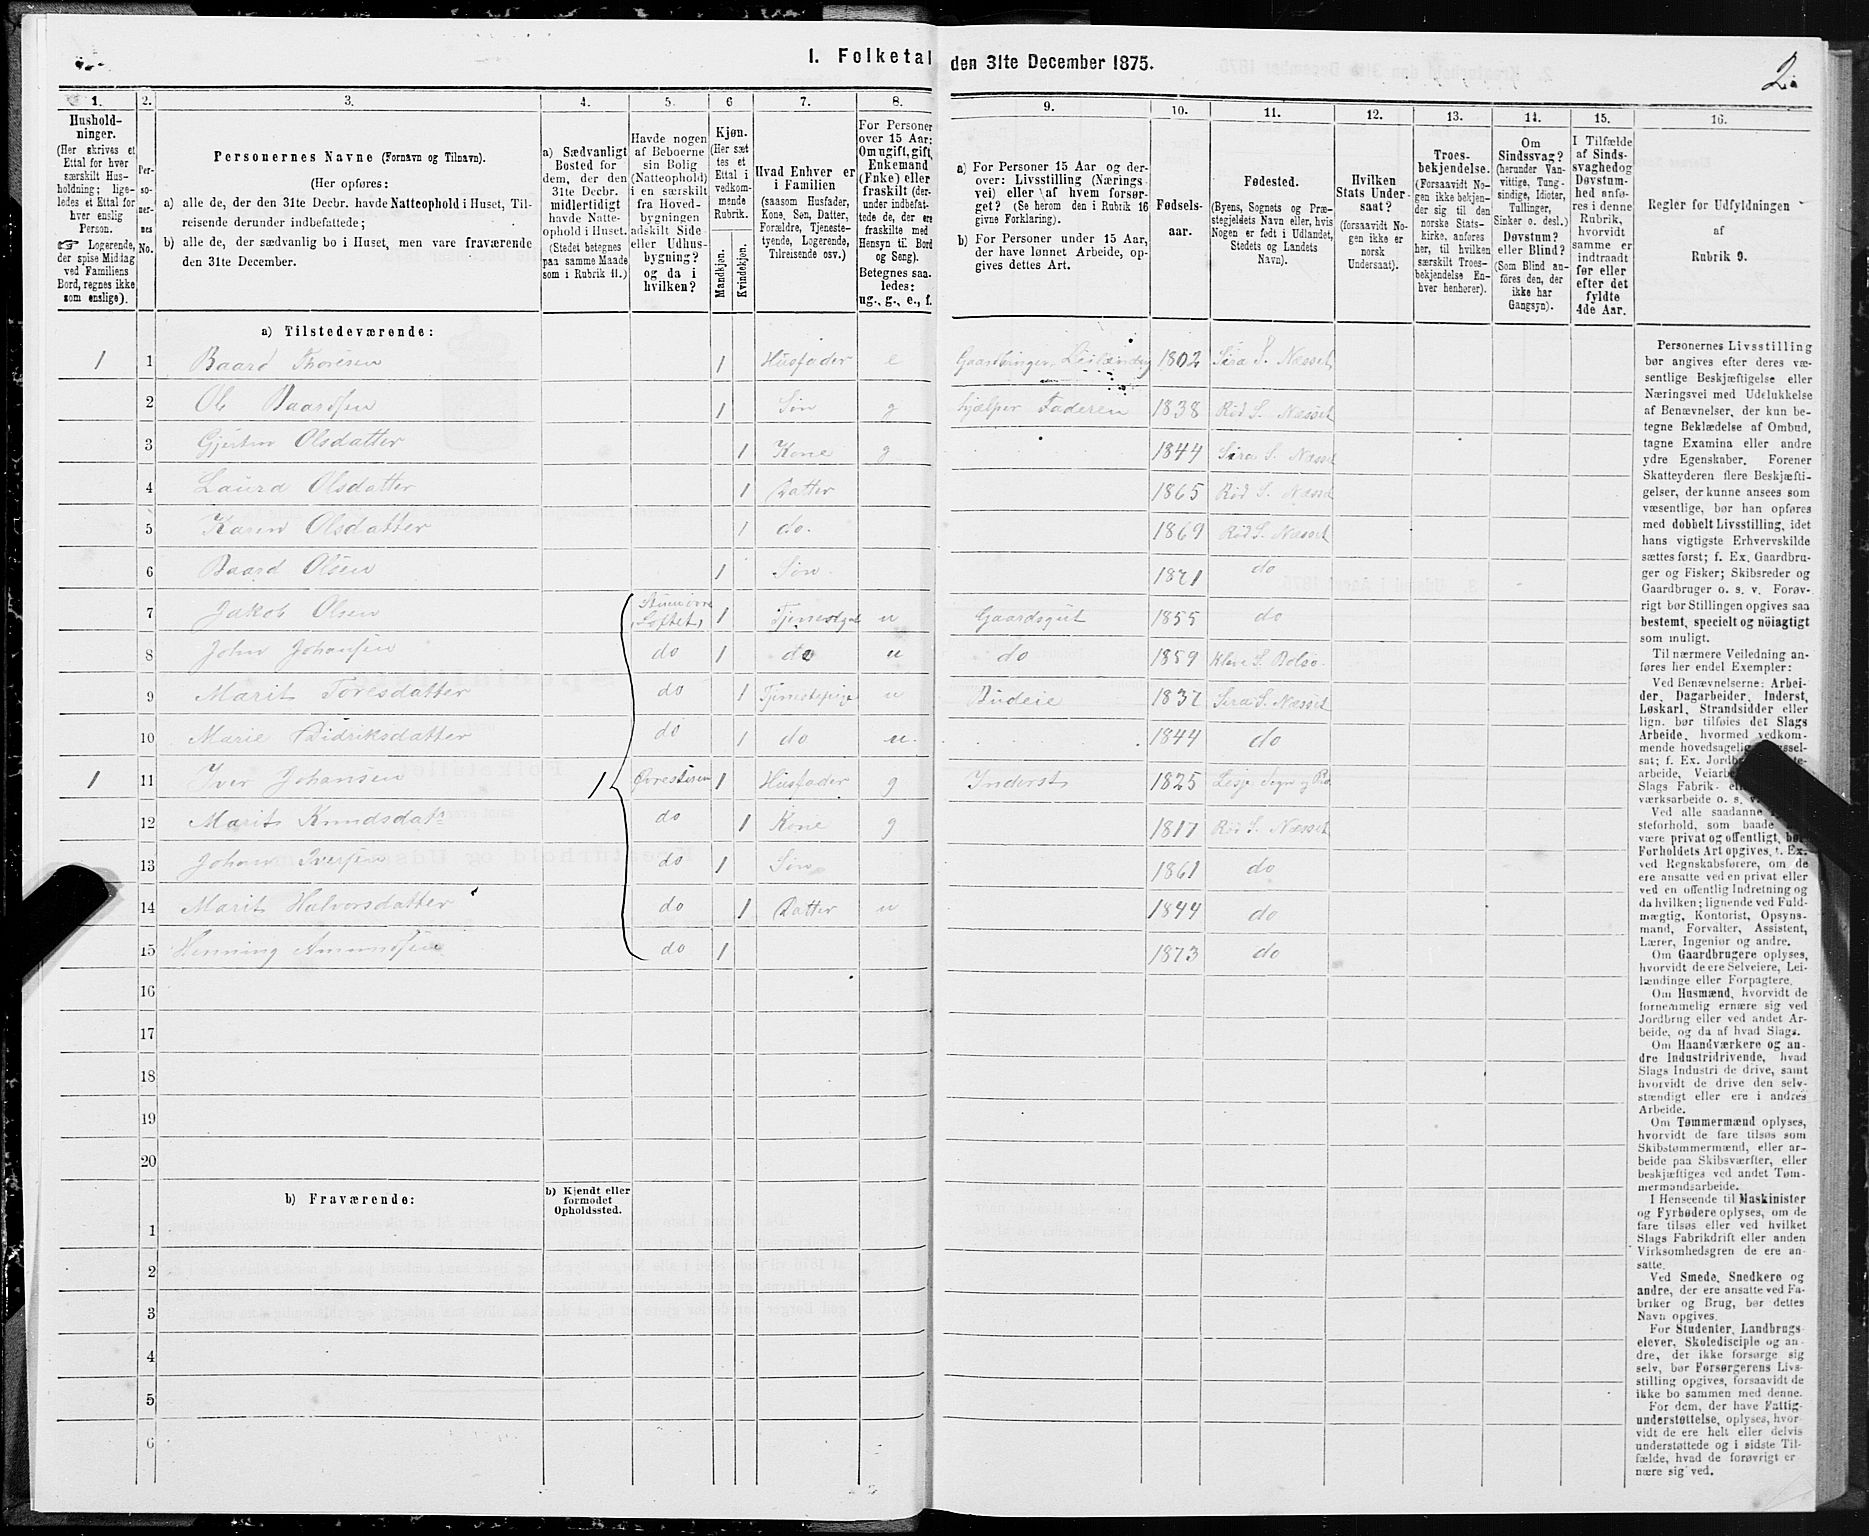 1. Folketal den 31te December 1875.
2.
1.
2.
3.
4.
5.
6
7.
8.
9.
10.
11.
12.
13.
14.
15.
16.
Hushold-
ninger.
(Her skrives et
Ettal for hver
særskilt Hus-
holdning; lige-
ledes et Ettal for
hver enslig
Person.
☞ Logerende,
der spise Middag
ved Familiens
Bord, regnes ikke
som enslige).
Per-
so-
ner-
nes
No.
Personernes Navne (Fornavn og Tilnavn).
(Her opføres:
a) alle de, der den 31te Decbr. havde Natteophold i Huset, Til-
reisende derunder indbefattede;
b) alle de, der sædvanlig bo i Huset, men vare fraværende
den 31te December.
a) Sædvanligt
Bosted for
dem, der den
31te Decbr.
midlertidigt
havde Natte-
ophold i Huset.
(Stedet betegnes
paa samme Maade
som i Rubrik 11.)
Havde nogen
af Beboerne
sin Bolig
(Natteophold)
i en særskilt
fra Hoved-
bygningen
adskilt Side-
eller Udhus-
bygning?
og da i
hvilken?
Kjøn.
(Her sæt
tes et
Ettal i
vedkom-
mende
Rubrik.
Mandkjøn.
Kvindekjøn.
Hvad Enhver er
i Familien
(saasom Husfader,
Kone, Søn, Datter,
Forældre, Tjeneste-
tyende, Logerende,
Tilreisende osv.)
For Personer
over 15 Aar:
Om ugift, gift,
Enkemand
(Enke) eller
fraskilt (der-
under indbefat-
tede de, der ere
fraskilte med
Hensyn til Bord
og Seng).
Betegnes saa-
ledes:
ug., g., e., f.
a) For Personer 15 Aar og der-
over: Livsstilling (Nærings
vei) eller af hvem forsør-
get? (Se herom den i Rubrik 16
givne Forklaring).
b) For Personer under 15 Aar,
der have lønnet Arbeide, op-
gives dettes Art.
Fødsels-
aar.
Fødested.
(Byens, Sognets og Præ-
stegjeldets Navn eller, hvis
Nogen er født i Udlandet,
Stedets og Landets
Navn).
Hvilken
Stats Under-
saat?
(forsaavidt No-
gen ikke er
norsk
Undersaat).
Troes-
bekjendelse.
(Forsaavidt No-
gen ikke bekjen-
der sig til den
norske Stats-
kirke, anføres
her, til hvilken
særskilt Troes-
bekjendelse En-
hver henhører).
Om
Sindssvag?
(herunder Van-
vittige, Tung-
sindige, Idioter,
Tullinger,
Sinker o. desl.)
Døvstum?
eller Blind?
(Som Blind an-
føres den, der
ikke har
Gangsyn).
I Tilfælde
af Sinds-
svaghed og
Døvstum-
hed anfø-
res i denne
Rubrik,
hvorvidt
samme er
indtraadt
før eller
efter det
fyldte
4de Aar.
Regler for Udfyldningen
af
Rubrik 9.
a) Tilstedeværende:
1 1 Baard Thoresen 1 Husfader e Gaardbruger, Leilænding 1802 Sira S. Næsset
2 Ole Baardsen 1 Søn g hjelper Faderen 1838 Rød S. Næsset
3 Gjertru Olsdatter 1 Kone g 1844 Sira S. Næsset
4 Laura Olsdatter 1 Datter 1865 Rød S. Næsset
5 Karen Olsdatter 1 do. 1869 Rød S. Næsset
6 Baard Olsen 1 Søn 1871 do
7 Jakob Olsen Loftet 1 u Gaardsgut 1855 do
8 John Johansen do 1 do u do 1859 Kleve S. Bolsø
9 Marit Toresdatter do 1 Tjenestepige u Budeie 1837 Sira S. Næsset
10 Marie Didriksdatter do 1 do u. 1844 do
1 11 Iver Johansen 1 1 Husfader g Inderst 1825 Lesje Sogn og
12 Marit Knudsdatr do 1 Kone g 1817 Rød S. Næsset
13 Johan Iversen do 1 Søn 1861 do
14 Marit Halvorsdatter do 1 Datter u 1844 do
15 Henning Amundsen do 1 1873 do
16
17
18
19
20
b) Fraværende:
b) Kjendt eller
formodet
Opholdssted.
1
2
3
4
5
6
Personernes Livsstilling
bør angives efter deres væ-
sentlige Beskjæftigelse eller
Næringsvei med Udelukkelse
af Benævnelser, der kun be-
tegne Beklædelse af Ombud,
tagne Examina eller andre
ydre Egenskaber. Forener
Skatteyderen flere Beskjæfti-
gelser, der kunne ansees som
væsentlige, bør han opføres
med dobbelt Livsstilling, idet
hans vigtigste Erhvervskilde
sættes først; f. Ex. Gaardbru-
ger og Fisker; Skibsreder og
Gaardbruger o. s. v. Forøv-
rigt bør Stillingen opgives saa
bestemt, specielt og nöiagtigt
som muligt.
Til nærmere Veiledning an-
føres her endel Exempler:
Ved Benævnelserne: Arbei-
der, Dagarbeider, Inderst,
Løskarl, Strandsidder eller
lign. bør tilføies det Slags
Arbeide, hvormed vedkom-
mende hovedsagelig
sat; f. Ex.
arbeide,
Slags Fabrik-
værksarbeide o. s. v.
Ved alle saadanne
steforhold, som baade
være privat og offentligt, bør
Forholdets Art opgives, f. Ex.
ved Regnskabsførere, om de
ere ansatte ved en privat eller
ved en offentlig Indretning og
da hvilken; lignende ved Fuld-
mægtig, Kontorist, Opsyns-
mand, Forvalter, Assistent,
Lærer, Ingeniør og andre.
Om Gaardbrugere oplyses,
hvorvidt de ere Selveiere, Lei-
lændinge eller Forpagtere.
Om Husmænd, hvorvidt de
fornemmelig ernære sig ved
Jordbrug eller ved andet Ar-
beide, og da af hvad Slags.
Om Haandværkere og an-
dre Industridrivende, hvad
Slags Industri de drive, samt
hvorvidt de drive den selv-
stændigt eller ere i andres
Arbeide.
Om Tømmermænd oplyses,
hvorvidt de fare tilsøs som
Skibstømmermænd, eller ar-
beide paa Skibsværfter, eller
beskjæftiges ved andet Tøm-
mermandsarbeide.
I Henseende til Maskinister
og Fyrbødere oplyses, om de
fare tilsøs eller ved hvilket
Slags Fabrikdrift eller anden
Virksomhedsgren de ere an-
satte.
Ved Smede, Snedkere og
andre, der ere ansatte ved Fa-
briker og Brug, bør dettes
Navn opgives.
For Studenter, Landbrugs-
elever, Skoledisciple og an-
dre, der ikke forsørge sig
selv, bør Forsørgerens Livs-
stilling opgives, forsaavidt de
ikke bo sammen med denne.
For dem, der have Fattig-
understøttelse, oplyses, hvor-
vidt de ere helt eller delvis
understøttede og i sidste Til-
fælde, hvad de forøvrigt er
nære sig ved.